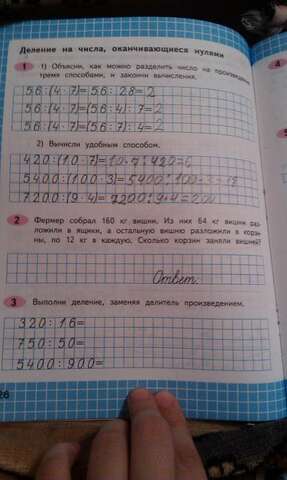 Деление на числа, оканчивающиеся нулями
1 1) Объясни, как можно разделить число на произведение
тремя способами, и закончи вычисления.
56:(4·7)=56:28=2
56:(4·7)=(56:4):7=2
56:(4·7)=(56:7):4=2
2) Вычисли удобным способом.
420:(10·7)=10·7:420=6
5400:(100·3)=5400:100:3=18
7200:(9·4)=7200:9·4=200
2 Фермер собрал 160 кг вишни. Из них 64 кг вишни раз-
ложили в ящики, а остальную вишню разложили в корзи-
ны, по 12 кг в каждую. Сколько корзин заняли вишней?
Ответ:
3 Выполни деление, заменяя делитель произведением.
320:16=
750:50=
5400:900=
26
4